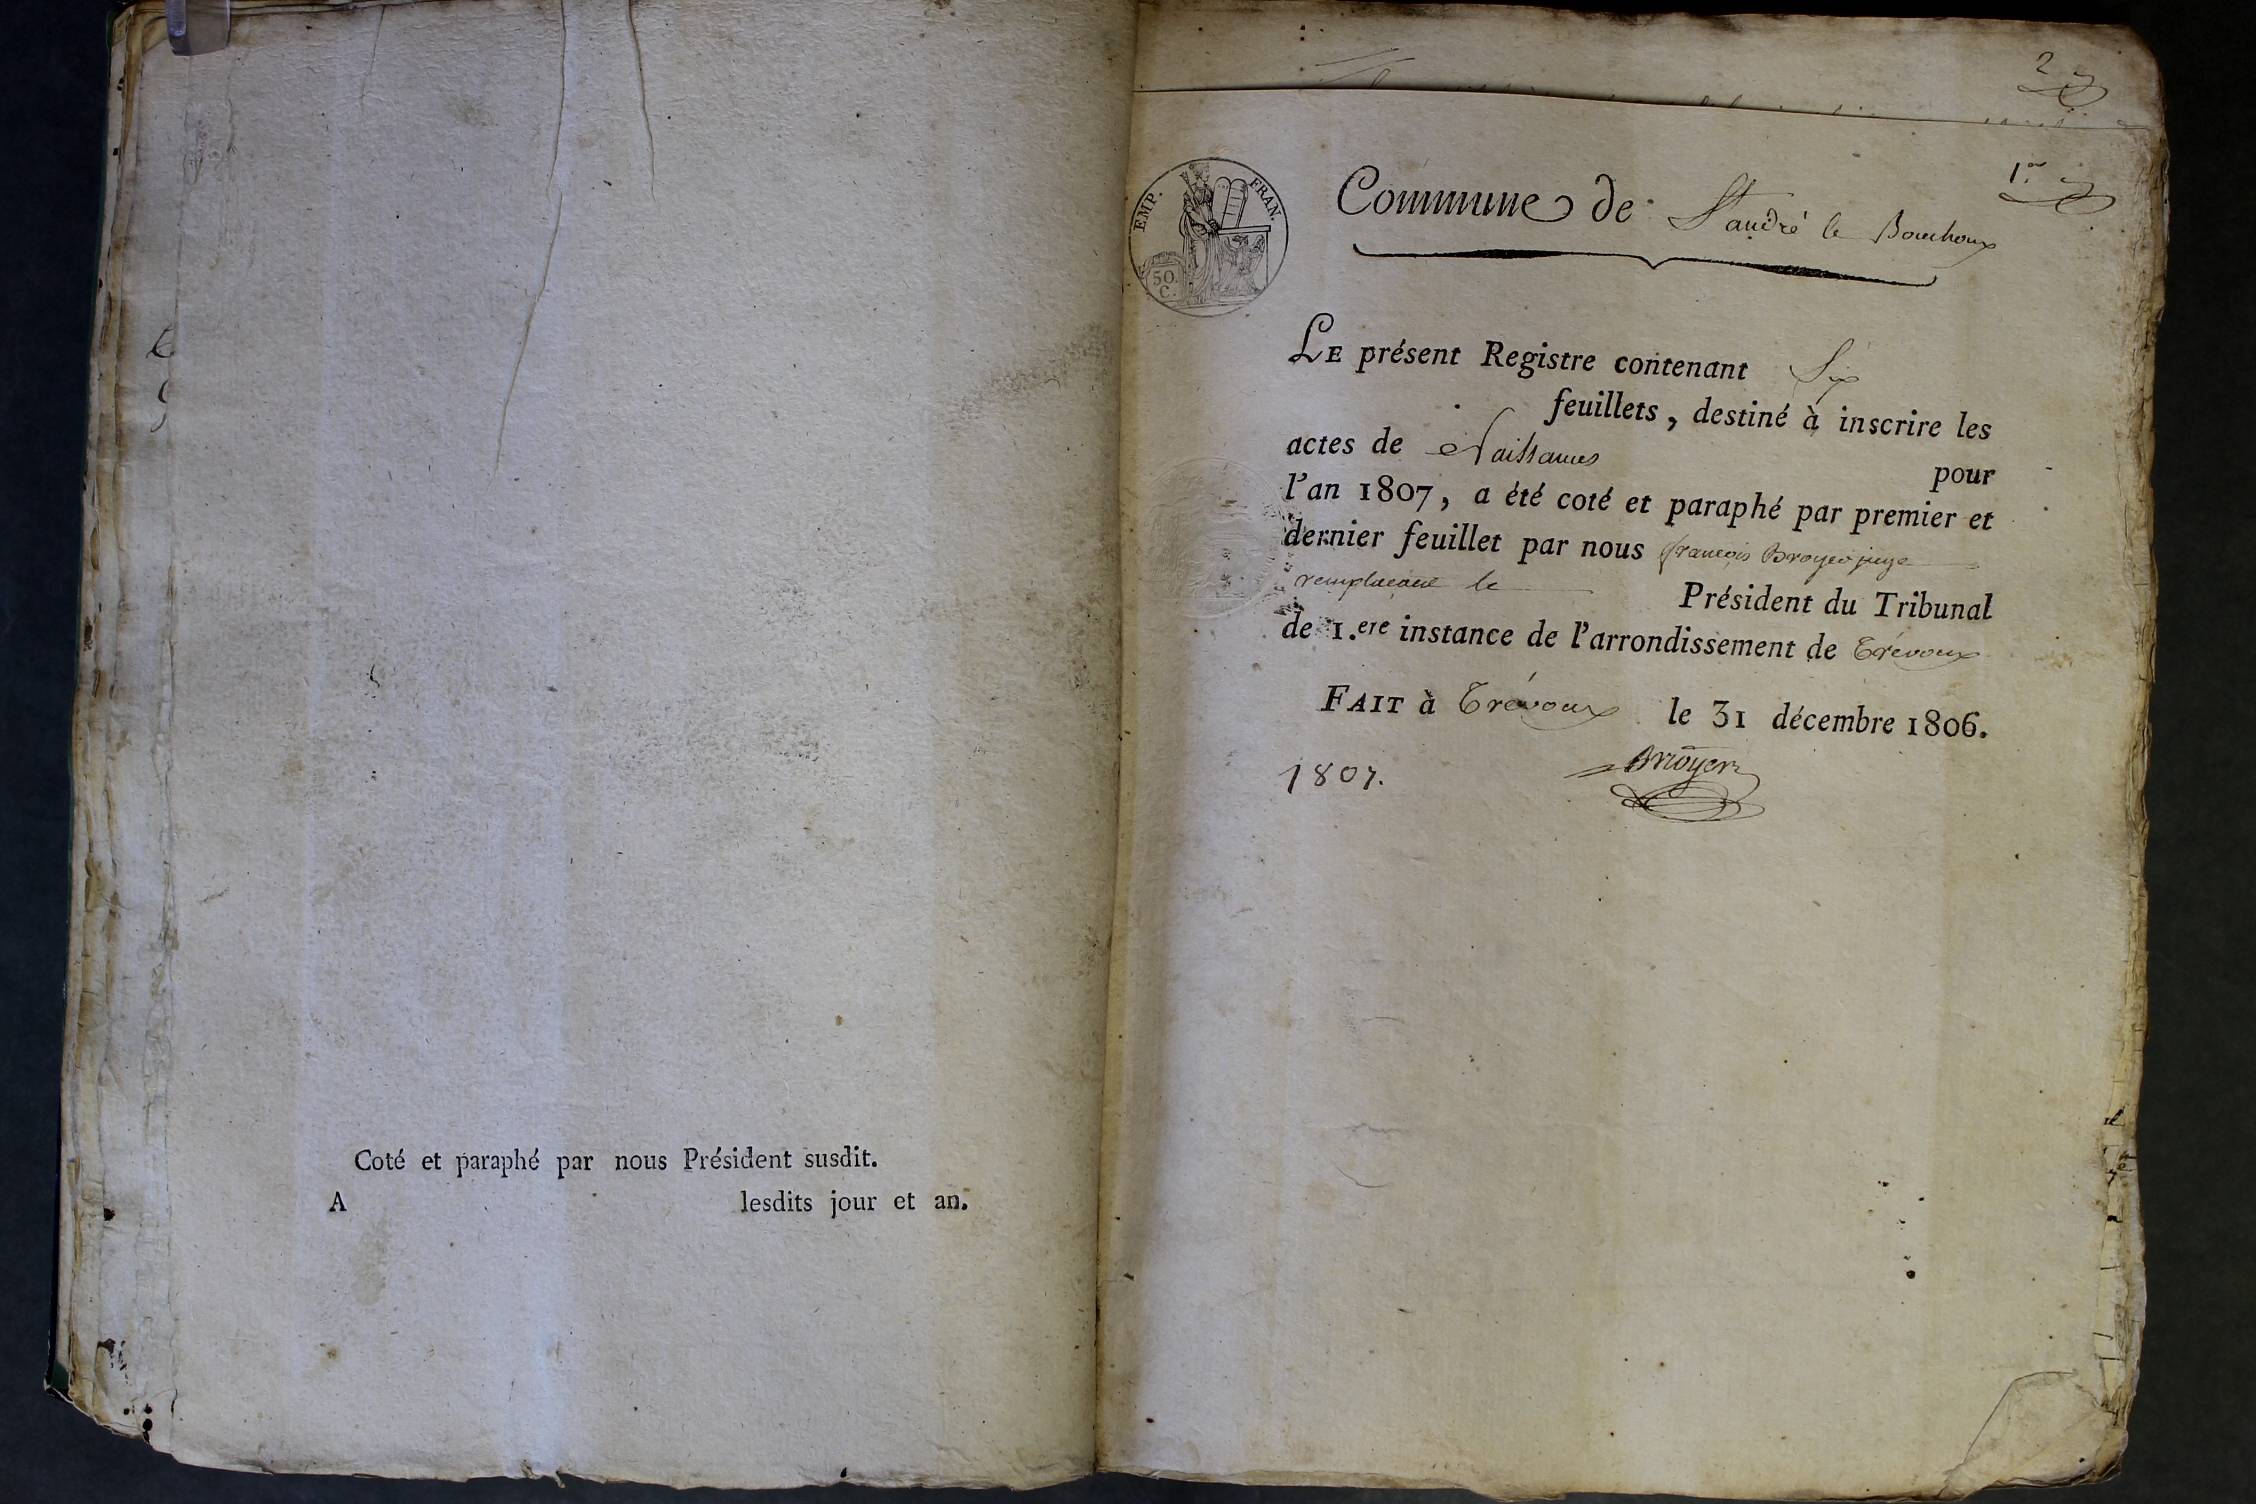 Coté et paraphé par nous Président susdit.
A lesdits jour et an.
2
1er
EMP. FRAN.
50 C.
Commune de St andré le Bouchoux
LE présent Registre contenant Six
feuillets, destiné à inscrire les
actes de Naissances pour
l'an 1807, a été coté et paraphé par premier et
dernier feuillet par nous françois Broyer juge
remplaçant le Président du Tribunal
de 1.ere instance de l'arrondissement de Trévoux
FAIT à Trévoux le 31 décembre 1806.
1807. Broyer